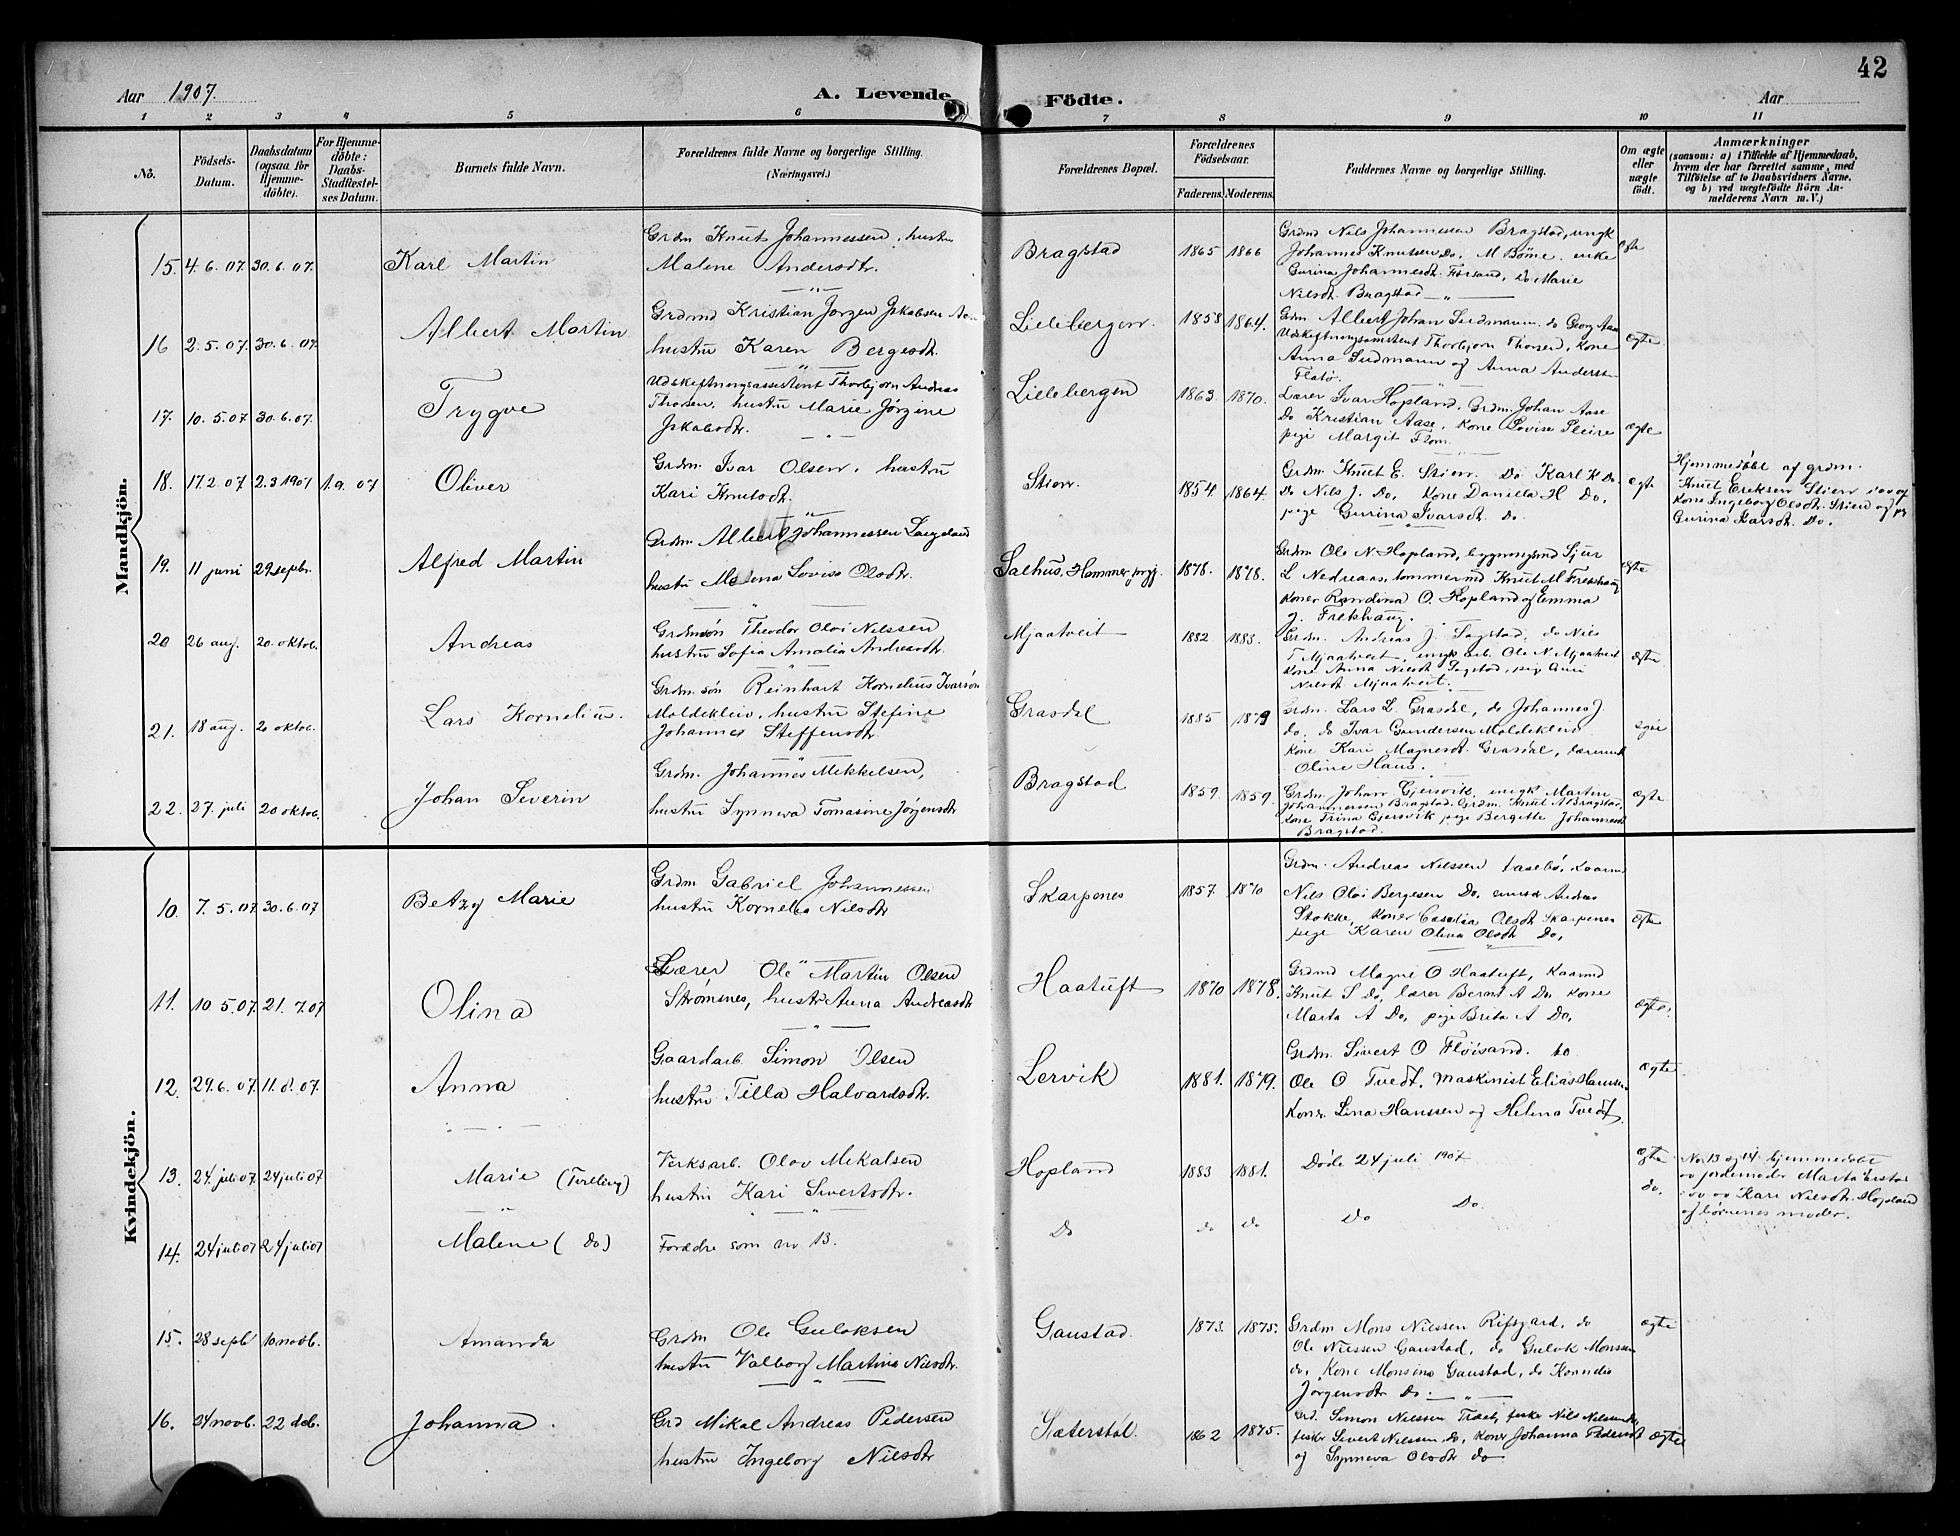 42
Aar 1907.
A. Levende Födte.
Aar
1 2 3 4 5 6 7 8 9 10 11
No.
Födsels-Datum.
Daabsdatum (ogsaa for Hjemmedöbte).
For Hjemmedöbte: Daabs-Stadfæstelses Datum.
Barnets fulde Navn.
Forældrenes fulde Navne og borgerlige Stilling.
(Næringsvei.)
Forældrenes Bopæl.
Forældrenes Födselsaar.
Faderens. Moderens.
Faddernes Navne og borgerlige Stilling.
Om ægte eller uægte födt.
Anmærkninger
(saasom: a) i Tilfælde af Hjemmedaab, hvem der har forrettet samme, med Tilföielse af to Daabsvidners Navne, og b) ved uægtefödte Börn Anmelderens Navn m. V.)
Mandkjön.
15. 4.6.07. 30.6.07. Karl Martin
Grdm Knut Johannessen, hustru
Malene Andersdtr.
Bragstad 1865 1866
Grdmd Nils Johannesen Bragstad, ungk
Johannes Knutssen Do, M Böme. enke
Gurina Johannesdt. Forsand, Do Marie
Nilsdt. Bragstad
ægte
16 2.5.07. 30.6.07. Albert Martin
Grdmd Kristian Jørgen Jakobsen
hustru Karen Bergesdt.
Lillebergen. 1858 1864.
Grdm Albert Johan Sudmann, do Georg Aase
Udskiftningsassistent Thorbjorn Thorsen, kone
Anna Sudmann og Anna Andersen
Flatø.
ægte
17. 10.5.07 30.6.07. Trygve
Udskiftningsassistent Thorbjørn Andreas
Thorsen, hustru Marie Jørgine
Jakobsdtr.
Lillebergen 1863. 1870.
Lærer Ivar Hopland, Grdm. Johan Aase
Do Kristian Aase, kone Lovise Pleire
pige Margit Flom.
ægte
18. 17.2.07 2.3 1907 1.9.07 Oliver
Grdm. Ivar Olsen, hustru
Kari Knutsdt.
Stien 1854. 1864.
Grdm Knut E. Stien, Do Karl K Do
Do Nils J. Do, kone Daniella H Do,
pige Gurina Ivarsdt. Do.
ægte
Hjemmedøbt af grdm.
Knut Eriksen Stien
kone Ingeborg Olsdt. Stien og
Gurina Ivarsdt. Do.
19. 11 juni 29 septbr. Alfred Martin
Grdm Albert Johannessen Langeland
hustru Malena Lovise Olsdtr.
Salhus, Hammer prgj. 1878. 1878.
Grdm Ole N. Hopland, bygningsmd Sjur
L Nedreaas, tømmermd Knut M Frekhaug
koner Randina O. Hopland og Emma
J. Frekhaug.
ægte
20 26 aug. 20. oktob. Andreas
Grdmsøn Theodor Olai Nilssen
hustru Sofia Amalia Andreasdt.
Mjaatveit 1882 1883.
Grdm. Andreas J. Fagstad, do Nils
T Mjaatveit, ungk arb. Ole N Mjaatveit
kone Anna Nilsdt Fagstad, pige
Nilsdt Mjaatveit.
ægte
21. 18 aug. 20 oktob. Lars Kornelius.
Grdm. søn Reinhart Kornelius Ivarsøn
Moldekleiv, hustru Stefine
Johannes Steffensdtr
Grasdal 1885 1879
Grdm. Lars L. Grasdal, do Johannes J
do, do Ivar Gundersen Moldekleiv
kone Kari Magnesdt. Grasdal,
Oline Haus.
ægte
22. 27. juli 20 oktob. Johan Severin
Grdm. Johannes Mikkelsen,
hustru Synneva Tomasine Jørgensdtr
Bragstad 1859. 1859.
Grdm. Johan Gjersvik, ungk Martin
Johannessen Bragstad, Grdm. Knut A Bragstad,
kone Trina Gjersvik pige Bergitte Johannesdt
Bragstad.
ægte
Kvindekjön.
10. 7.5.07. 30.6.07 Betzy Marie
Grdm Gabriel Johannessen
hustru Kornelia Nilsdtr
Skarpenes 1857. 1870
Grdm. Andreas Nilssen Aasebø, kaarmd
Nils Olai Bergesen Do, Andreas
Stokke, koner Caselia Olsdt. Skarpenes
pige Karen Olina Olsdt Do,
ægte
11. 10.5.07. 21.7.07 Olina
Lærer Ole Martin Olsen
Strømsnes, hustru Anna Andreasdtr
Haatuft 1870 1878.
Grdmd Magne O Haatuft, kaarmd
Knut S Do, lærer Bernt A Do, kone
Marta A Do, pige Brita A Do,
ægte.
12. 29.6.07. 11.8.07. Anna
Gaardarb Simon Olsen
hustru Tilla Halvardsdtr.
Lervik 1881. 1879.
Grdm. Sivert O Fløisand. do
Ole O Tvedt, maskinist Elias Hansen
koner Lina Hanssen og Helena Tvedt
ægte
13. 24. juli 07. 24 juli 07 Marie (Tvilling)
Verksarb. Olav Mekalsen
hustru Kari Sivertsdtr.
Hopland 1883 1881.
Døde 24 juli 1907
ægte
No 13 og 14 hjemmedøbt
av jordemoder Marta Erstad
i ov av Kari Nilsdt. Hopland
og børnenes moder.
14. 24 juli 07 24 juli 07 Malene (do)
Forældre som no 13.
Do do Do Do Do. do.
15. 28 septb 10 novb. Amanda
Grdm Ole Guloksen
hustru Valborg Martine Nilsdtr.
Gaustad. 1873. 1875.
Grdm Mons Nilssen Risgard, do
Ole Nilssen Gaustad, do Gulak Monssen
do, kone Monsina Gaustad, do Kornelia
Jørgensdtr Do.
ægte
16. 24 novb. 22 deb. Johanna.
Grd Mikal Andreas Pedersen
hustru Ingeborg Nilsdtr
Sæterstøl. 1862 1875.
Grd. Simon Nilssen Træet, fisker Nils Nilssen do,
fisker Sivert Nilssen, do, koner Johanna Pedersdt
og Synneva Olsdtr do
ægte